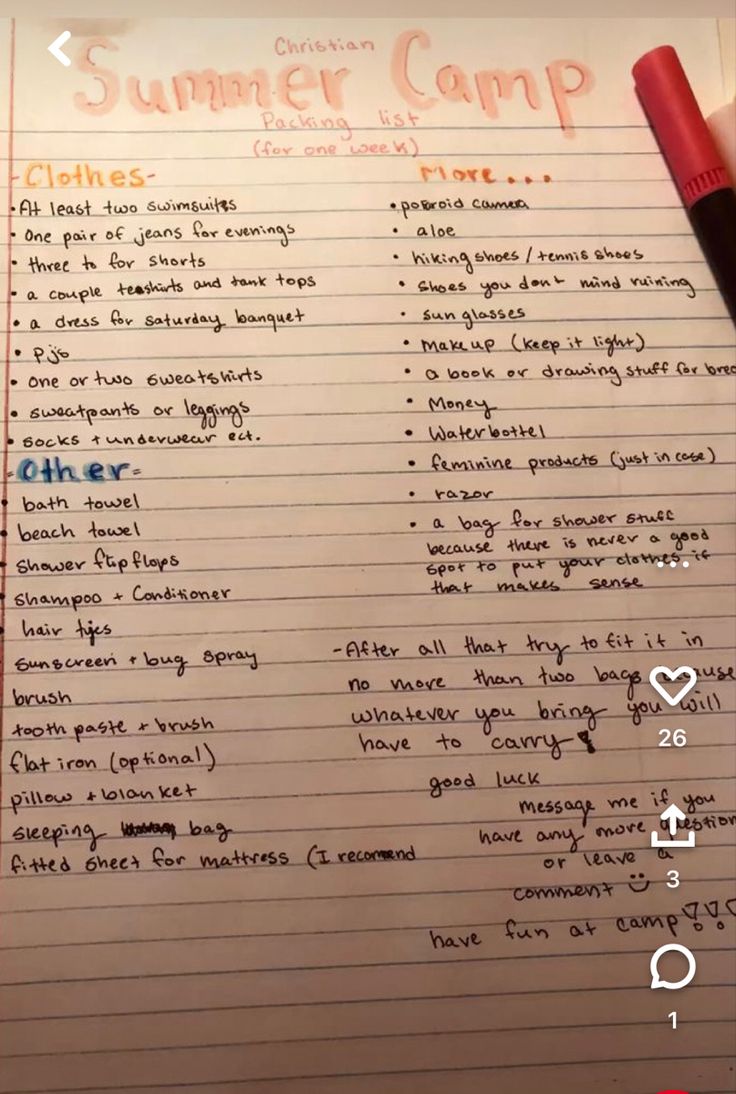 Christian
Summer Camp
Packing list
(for one week)
-Clothes-
• At least two swimsuits
• One pair of jeans for evenings
• three to for shorts
• a couple teshirts and tank tops
• a dress for saturday banquet
• Pjs
• one or two sweatshirts
• sweatpants or leggings
• socks + underwear ect.
-Other-
• bath towel
• beach towel
• shower flip flops
• shampoo + Conditioner
• hair
sunscreen + bug spray
brush
tooth paste + brush
flat iron (optional)
pillow + blanket
sleeping bag
fitted sheet for mattress (I
More...
• camera
• aloe
• hiking shoes / tennis shoes
• shoes you dont mind ruining
• sunglasses
• makeup (keep it light)
• a book or drawing stuff for
• Money
• Waterbottel
• feminine products (just in case)
• razor
• a bag for shower stuff
because there is never a good
spot to put your clothes if
that makes sense
-After all that try to fit it in
no more than two bags
whatever you bring you will
have to carry
good luck
message me if you
have any more question
or leave a
comment
have fun at camp
26
3
1